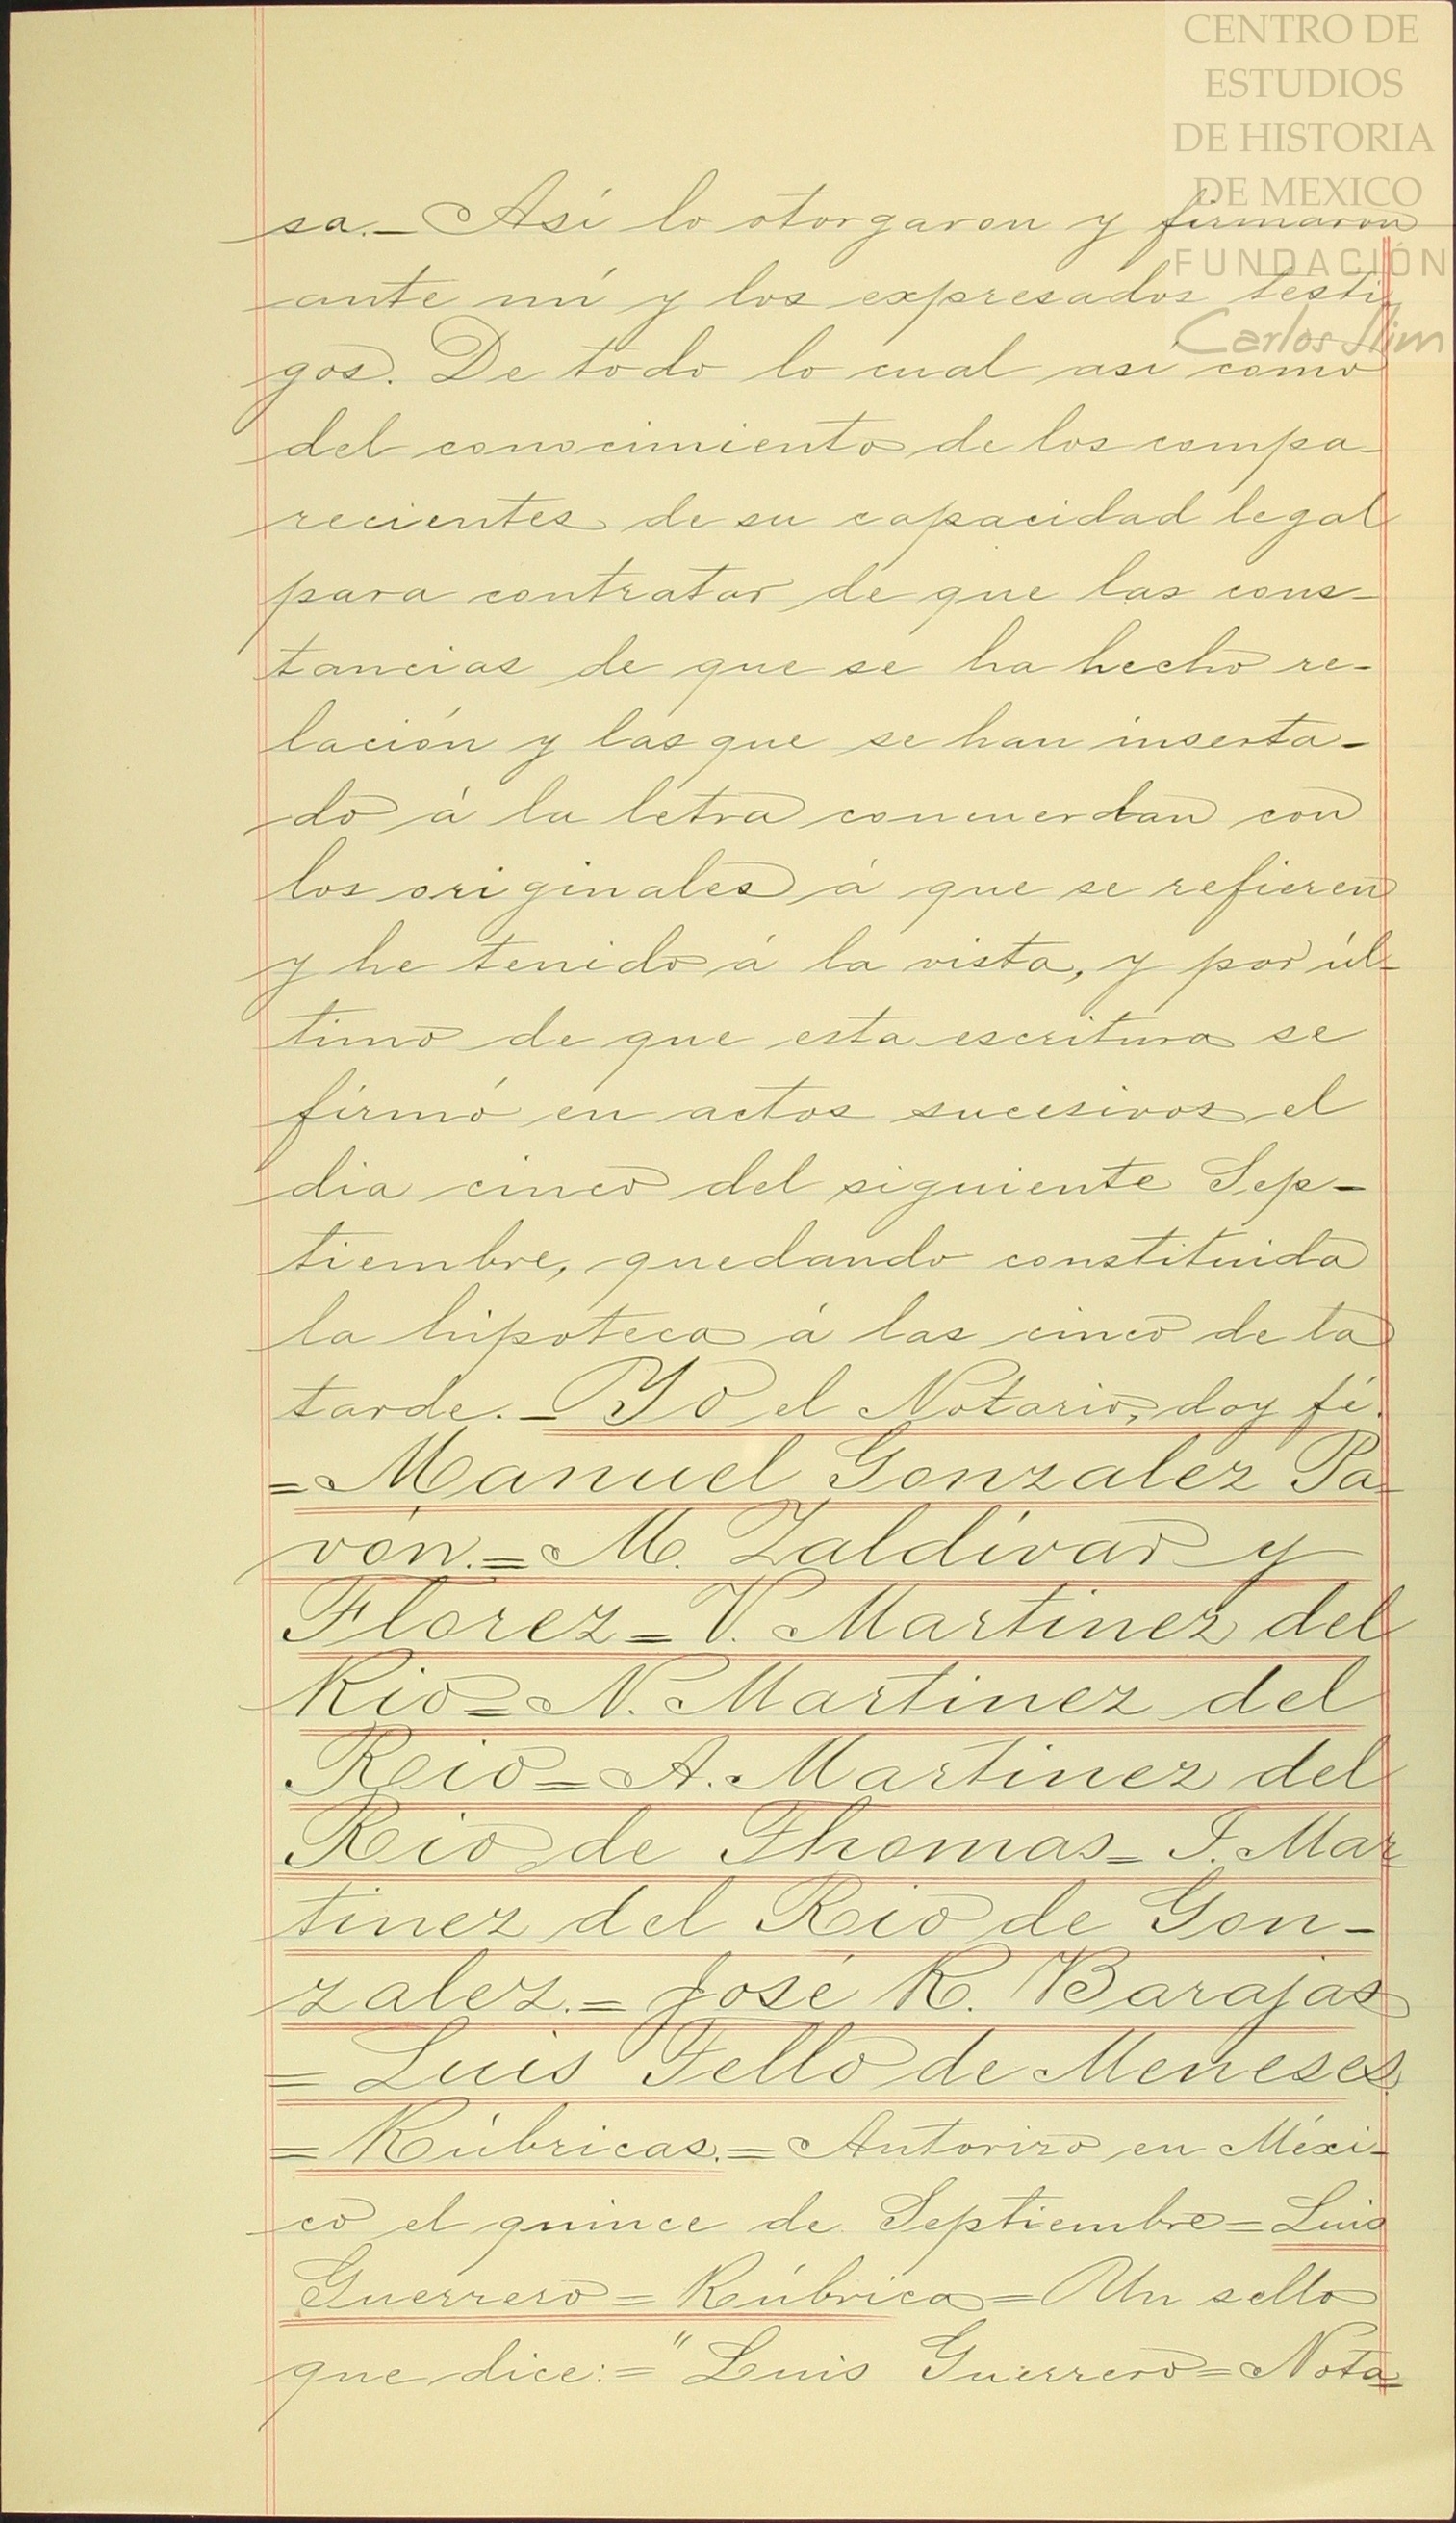 CENTRO DE
ESTUDIOS
DE HISTORIA
DE MEXICO
FUNDACIÓN
Carlos Slim
sa.- Así lo otorgaron y firmaron
ante mí y los expresados testi
gos. De todo lo cual así como
del conocimiento de los compa-
recientes de su capacidad legal
para contratar de que las cons-
tancias de que se ha hecho re-
lación y las que se han inserta-
do á la letra concuerdan con
los originales á que se refieren
y he tenido á la vista, y por úl-
timo de que esta escritura se
firmó en actos sucesivos el
dia cinco del siguiente Sep-
tiembre, quedando constituida
la hipoteca á las cinco de la
tarde.- Yo el Notario, doy fé.
= Manuel Gonzalez Pa-
vón.= M. Zaldívar y
Florez = V. Martinez del
Rio = N. Martinez del
Rio = A. Martinez del
Rio de Thomas = I. Mar
tinez del Rio de Gon-
zalez.= José R. Barajas
= Luis Tello de Meneses
= Rúbricas.= Autorizo en Méxi-
co el quince de Septiembre = Luis
Guerrero = Rúbrica = Un sello
que dice: = "Luis Guerrero = Nota